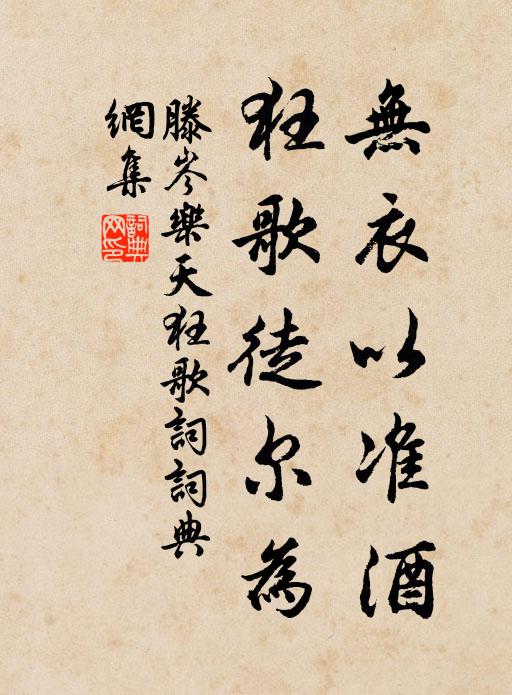 無衣以准酒
狂歌徒尔為
滕岑樂天狂歌詞詞典
網集
詞典
网印